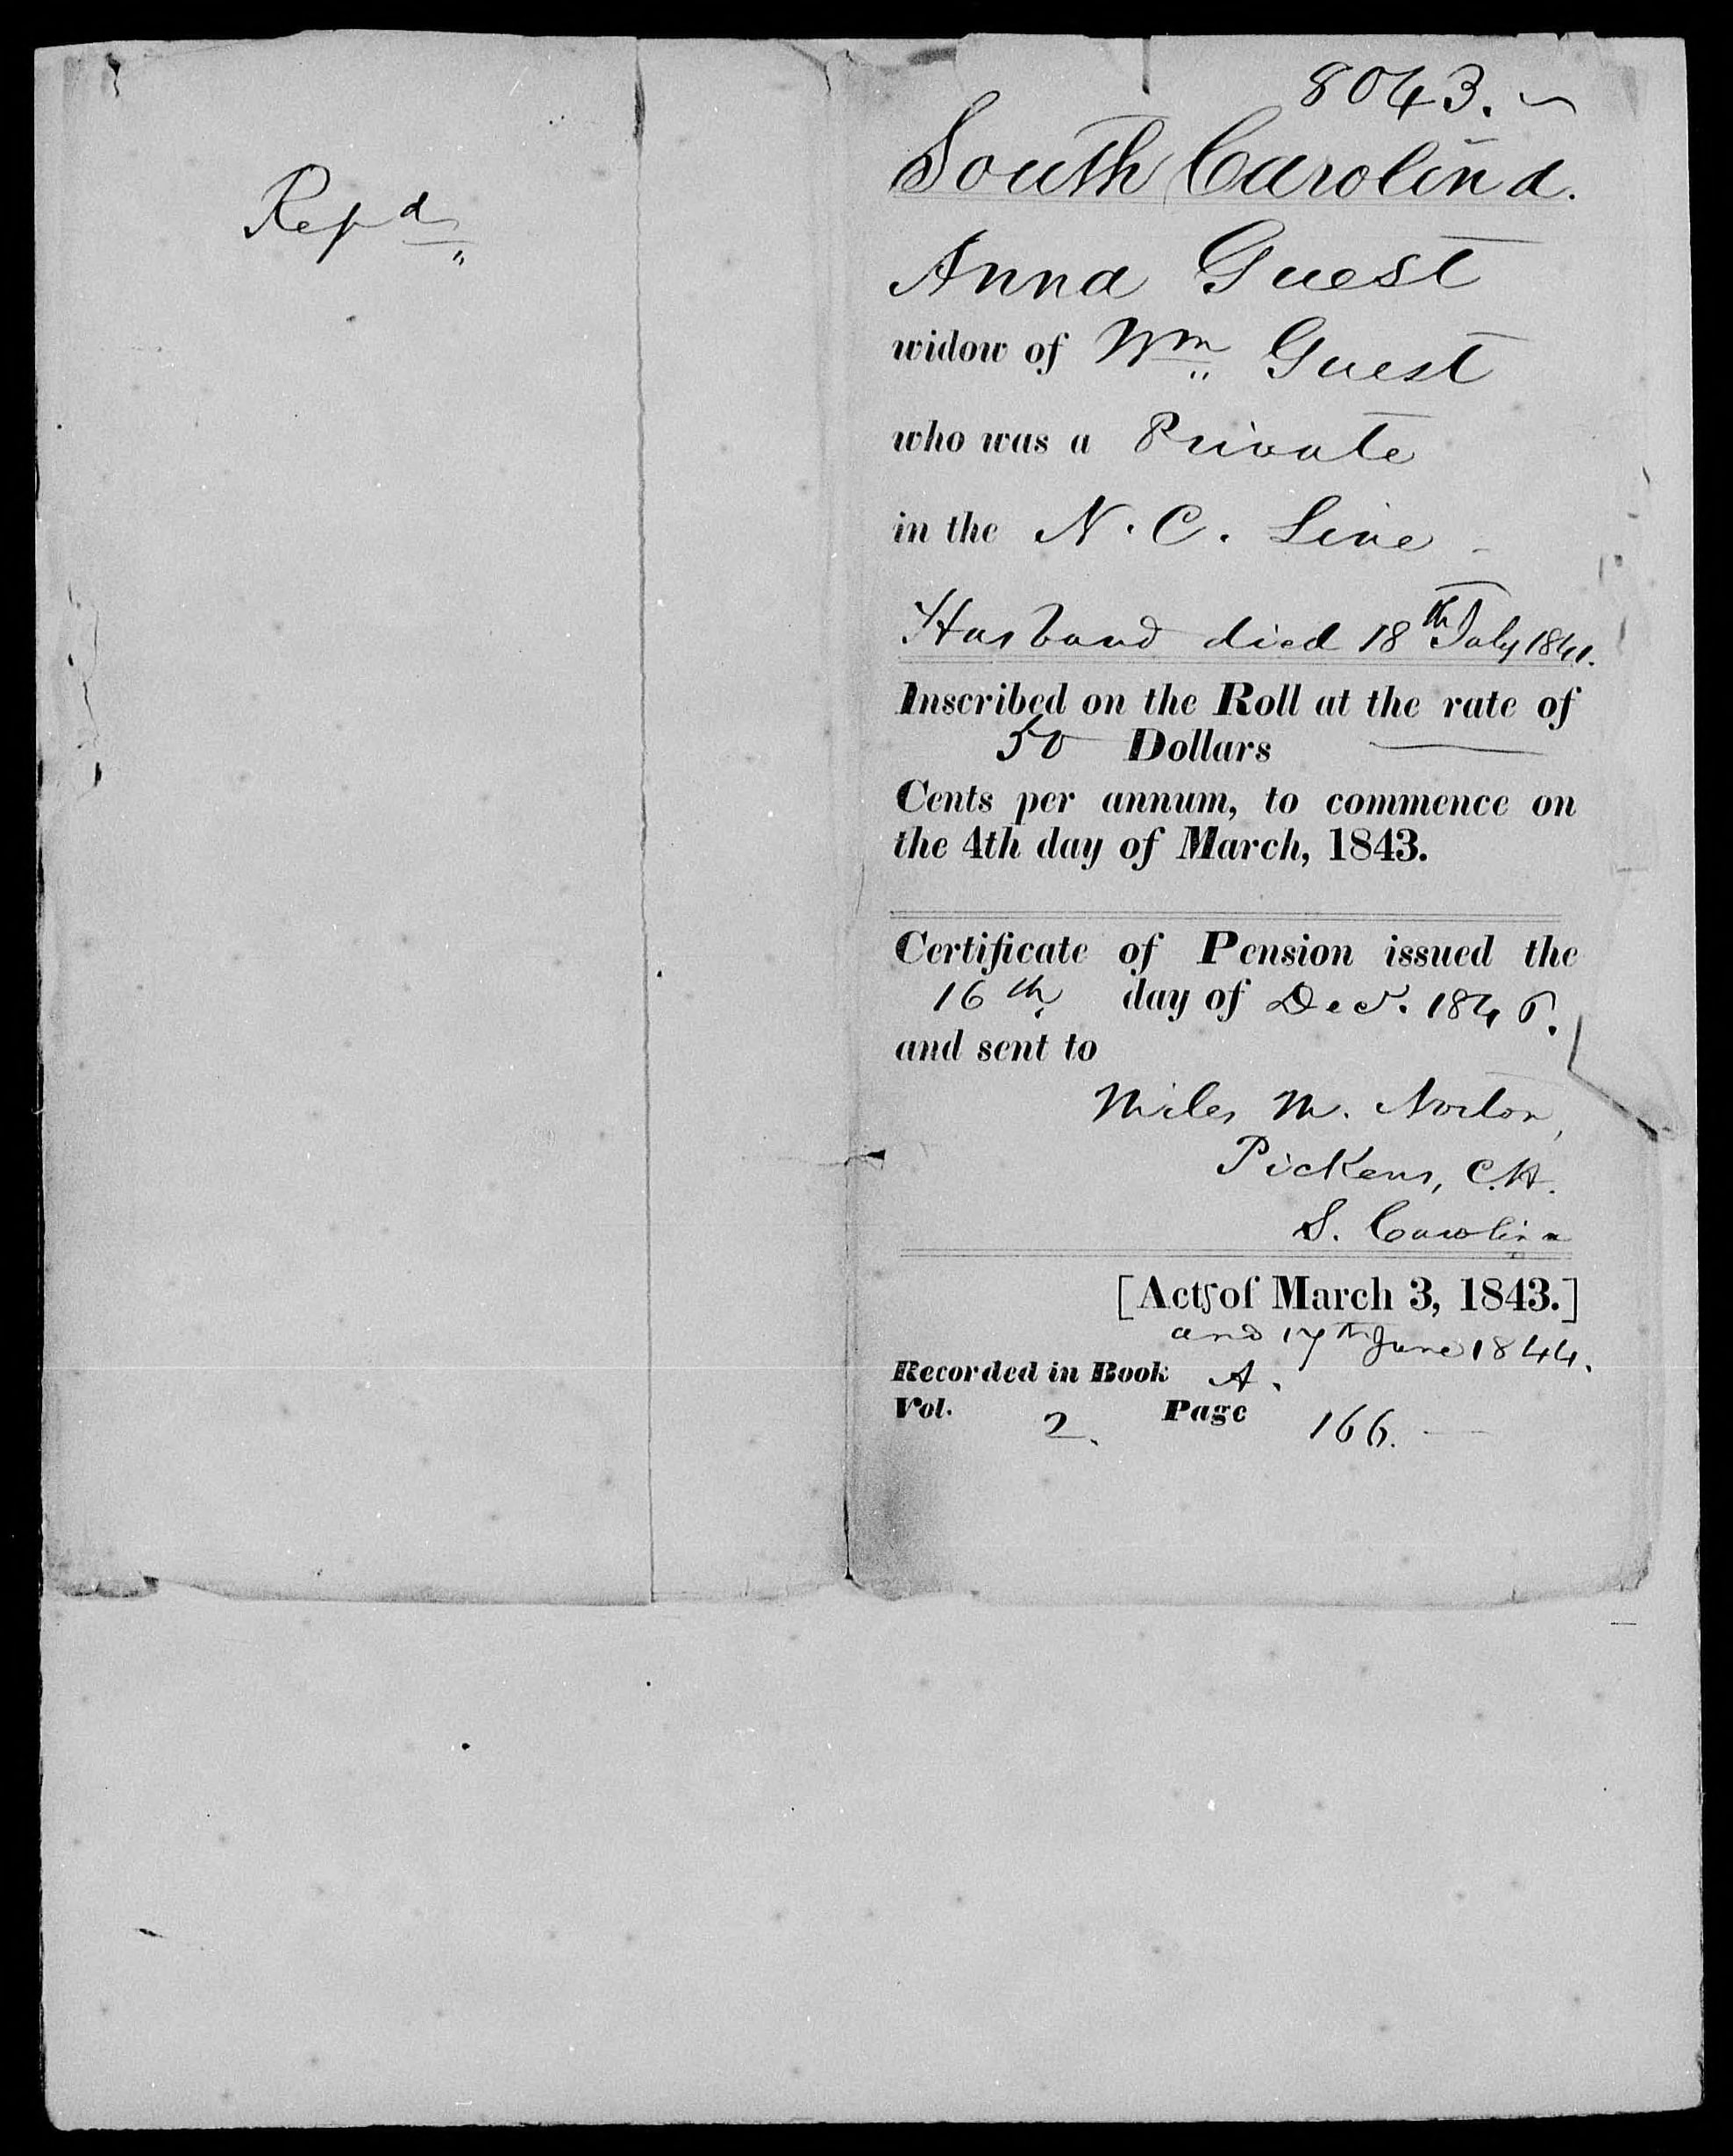 Rep d
8043.
South Carolina.
Anna Guest
widow of Wm Guest
who was a Private
in the N. C. Line
Husband died 18th July 1841.
Inscribed on the Roll at the rate of
50 Dollars
Cents per annum, to commence on
the 4th day of March, 1843.
Certificate of Pension issued the
16th day of Dec.
and sent to
Miles M. Norton,
Pickens, C.H.
S. Carolina
[Acts of March 3, 1843.]
and 17th June 1844.
Recorded in Book A.
Vol. 2. Page 166.